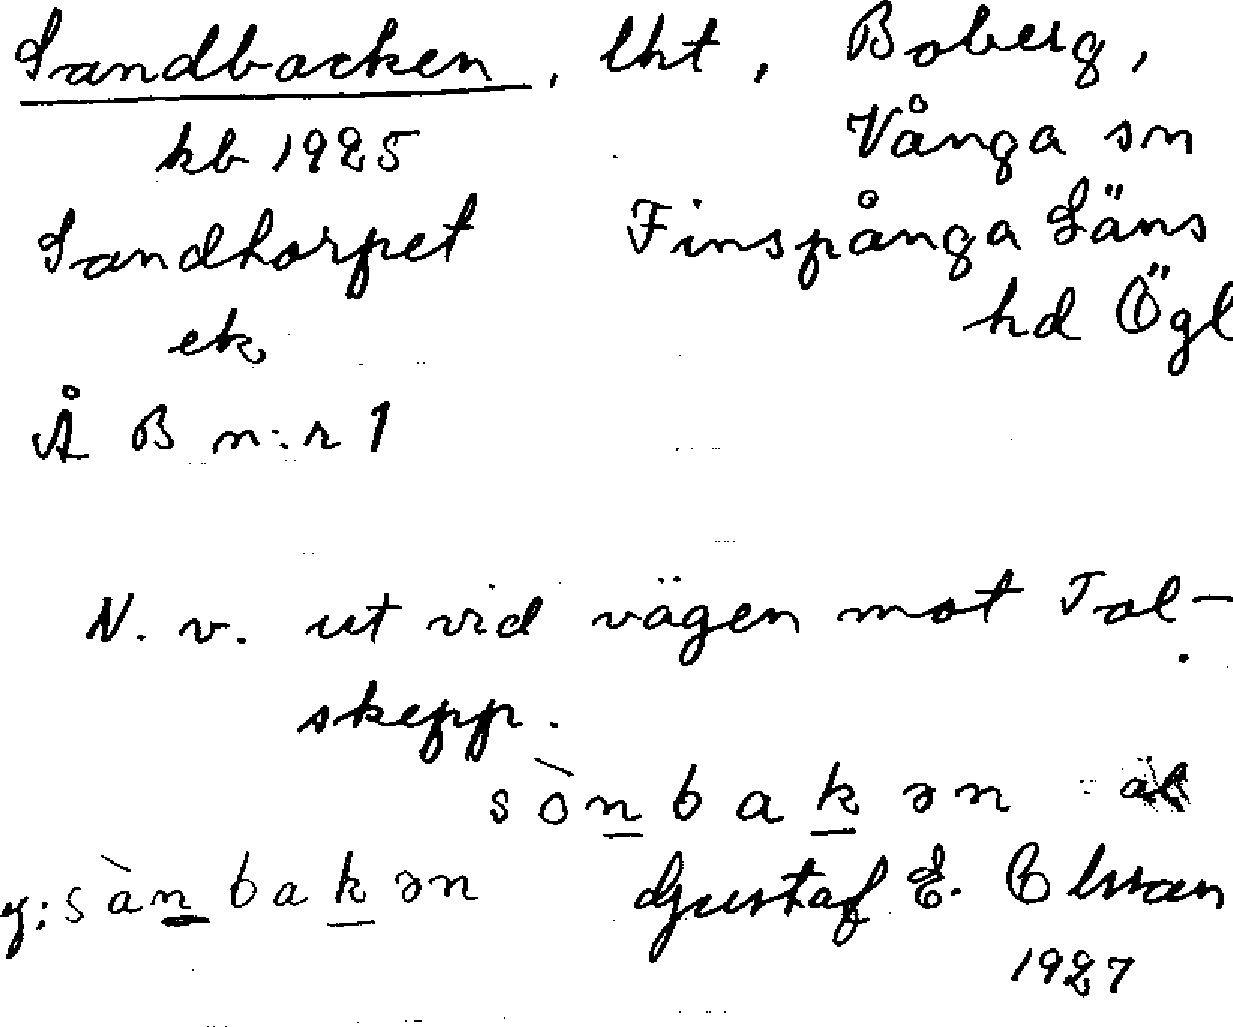 Sandbacken, lht, Boberg,
kb 1925 Vånga sn
Sandtorpet Finspånga Läns
ek hd Ögl
Å B n:r 1
N. v. ut vid vägen mot Tol-
skepp.
sònbakən
y: sànbakən Gustaf E. Olsson
1927